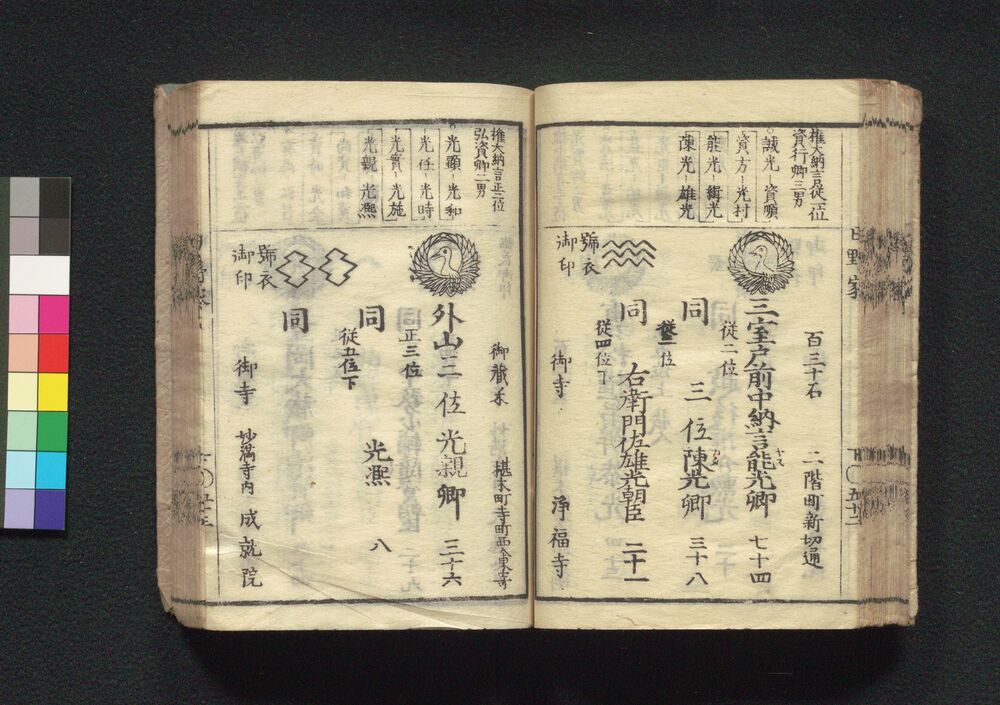 日野家
下〇五十二
權大納言從一位
資行卿三男
誠光 資順
資方 光村
能光 緝光
陳光 雄光
百三十石 二階町新切通
三室戸前中納言能光卿 七十四
從二位
同 三位陳光卿 三十八
從一位
同 右衛門佐雄光朝臣 二十一
從四位下
號衣
御印
御寺 浄福寺
權大納言正二位
弘資卿二男
光顕 光和
光任 光時
光實 光施
光親 光熈
御蔵米 椹木町寺町西入東寄
外山三位光親卿 三十六
正三位
同 光熈 八
從五位下
同
號衣
御印
御寺 妙満寺内 成就院